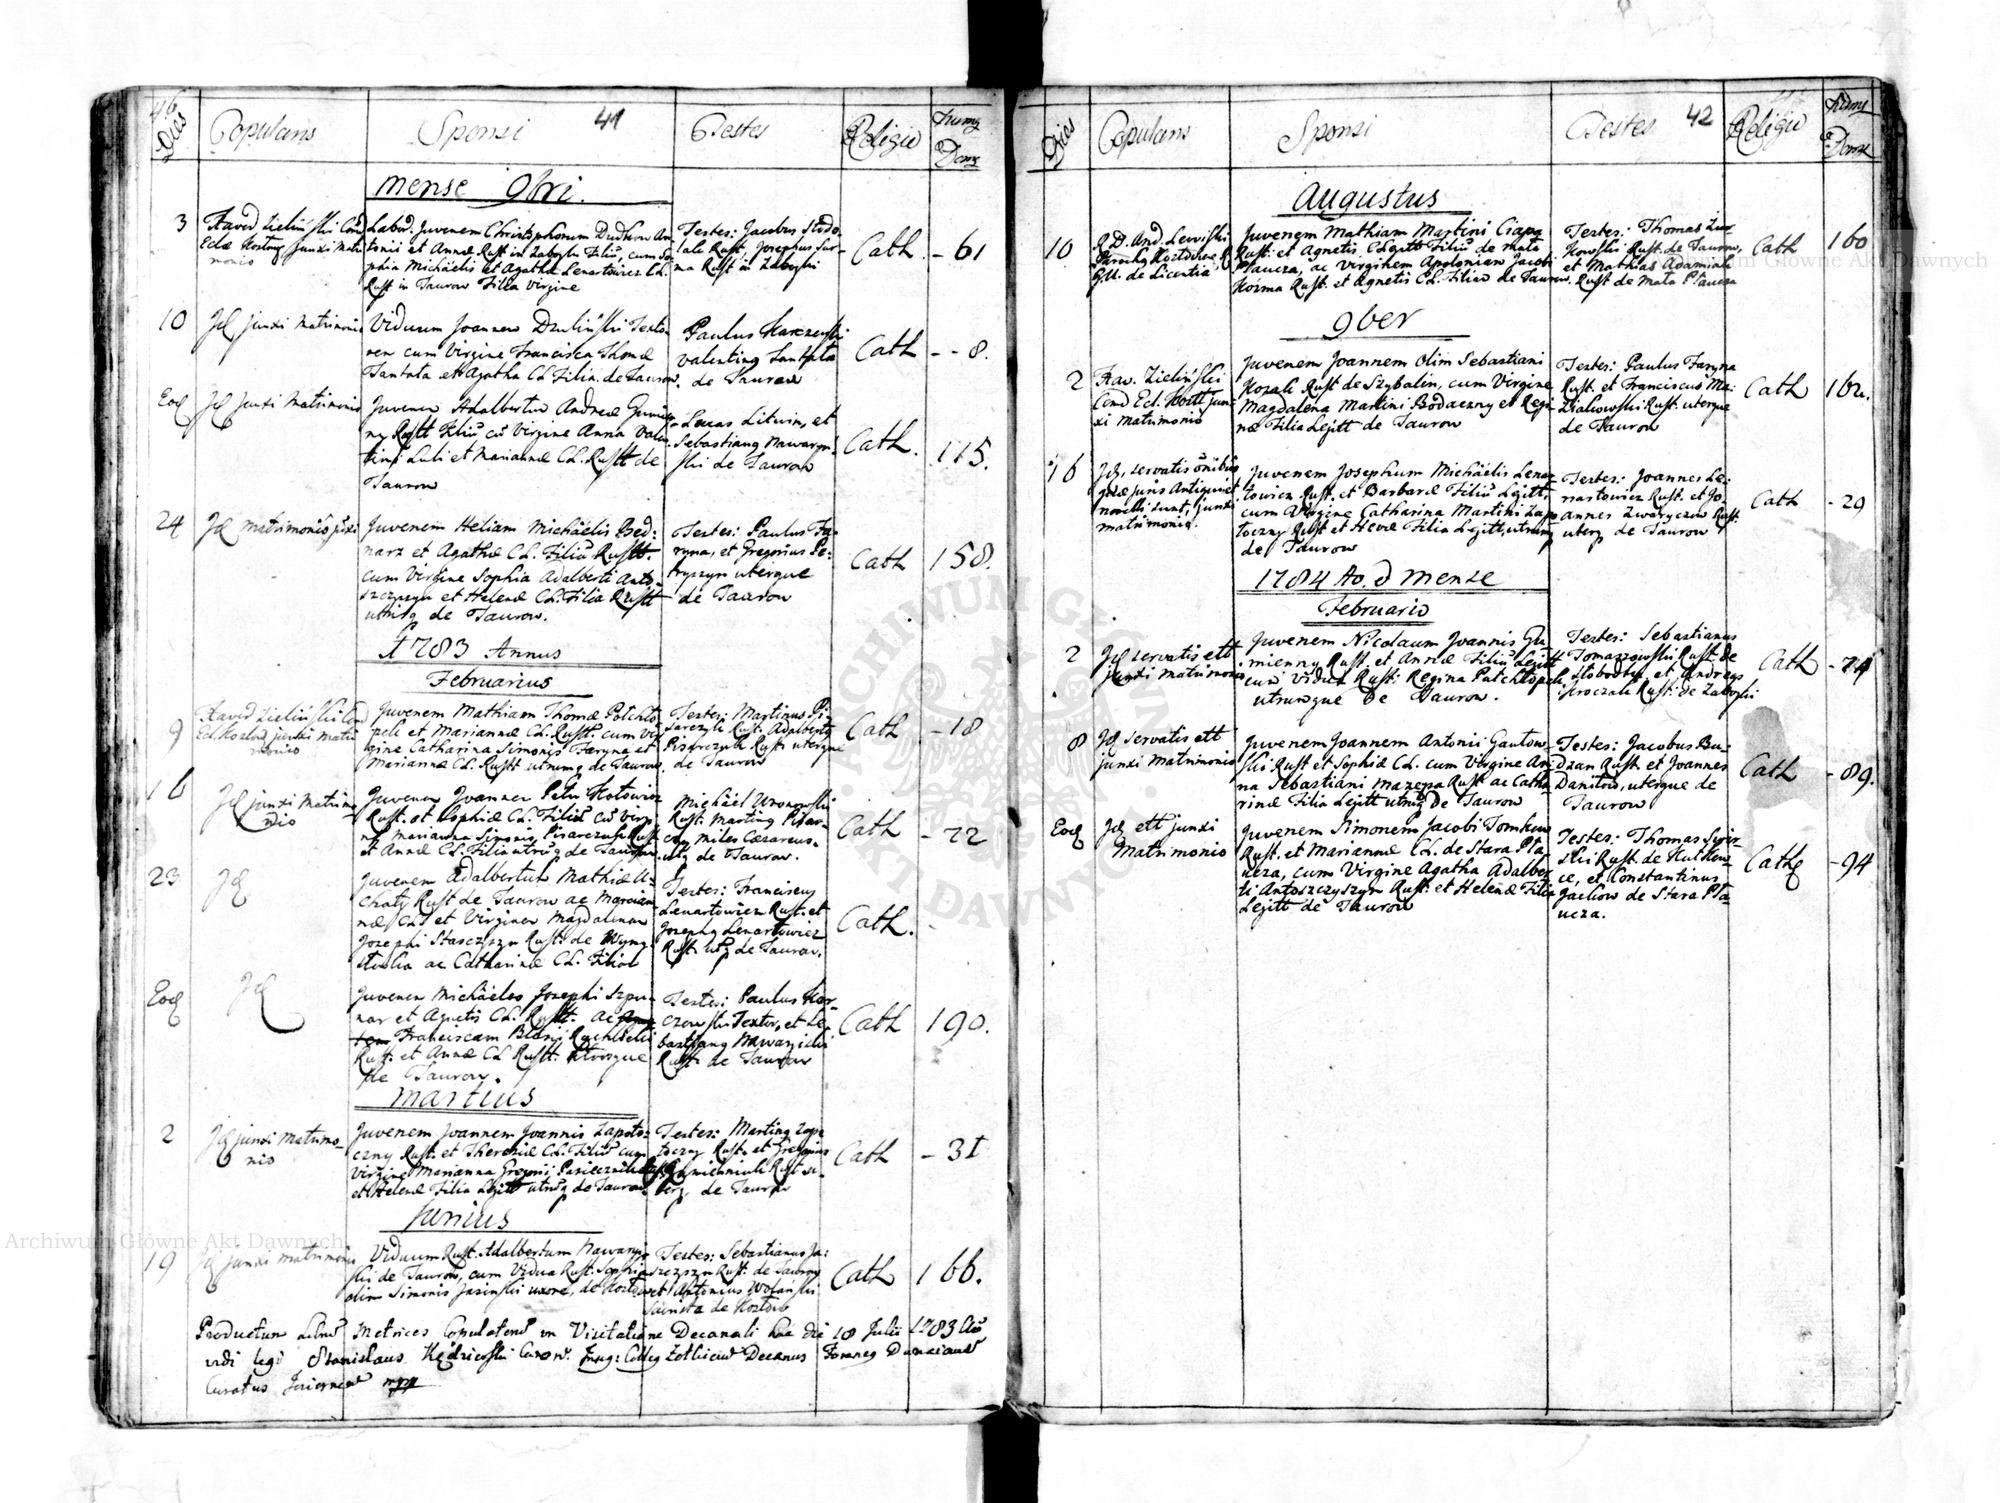 46
41
Dies
Copulans
Sponsi
Testes
Religio
Domg
mense 9bri.
3
Labor. Juvenem Christophorum
tonii et Annæ Rust in Zaboyki Filiū, cum So-
phia Michäelis et Agatha Lenartowicz CL.
Rust in Taurow Filia virgine
Testes: Jacobus
Rust. Josephus Sur-
ma Rust in Zaboyki
Cath
- 61
10
Jd junxi Matrimonio
Viduum Joannem Texto-
rem cum Virgine Francisca Thomæ
Tantala et Agatha CL Filia. de Taurow.
Paulus Karczewski
valenting Tantala
de Taurow
Cath
- - 8.
Eod
Jd junxi Matrimonio
Juvenem Adalbertum Andreæ
Rustt Filiū cū Virgine Anna Valen-
tini Luli et Mariannæ CL. Rustt de
Taurow
Lucas Litwin, et
Sebastiang Nawaryn-
ski de Taurow
Cath.
115.
24
Jd Matrimonio jūxi
Juvenem Heliam Michäelis Bed-
narz et Agathæ CL. Filiū Rustt.
cum Virgine Sophia Adalberti Anto-
szczyszyn et Helenæ CL. Filia Rustt
utrūsq de Taurow.
Testes: Paulus Fa-
ryna, et Gregorius Pe-
tryszyn uterque
de Taurow
Cath
158.
1783 Annus
Februarius
9
Juvenem Mathiam Thomæ Potchlo-
pek et Mariannæ CL. Rustt. cum Vir-
gine Catharina Simonis Faryna et
Mariannæ CL. Rustt utrumq de Taurow.
Testes: Martinus Pi-
sarczyk Rust. Adalbertg
Pisarczyk Rust. uterque
de Taurow
Cath
- 18
16
Jd junxi Matrimo-
nio
Juvenem Joannem Petri Kotowicz
Rust. et Sophiæ CL. Filiū cū Virgi-
ne Marianna Simonis Pisarczuk Rust
et Annæ CL. Filia utrūq de Taurow.
Michäel Woronowski
Rust. Marting Pisar-
czyk Miles Cæsareus.
utq de Taurow.
Cath
- 22
23
Jd
Juvenem Adalbertum Mathiæ
Rust de Taurow ac Marian-
næ CL. et Virginem Magdalenam
Josephi Stasczyszyn Rust. de
ac Catharinæ CL. Filiā
Testes: Franciscus
Lenartowicz Rust. et
Josephg Lenartowicz
Rust. utq de Taurow.
Cath.
Eod
Jd
Juvenem Michäelem Josephi Szpu-
nar et Agnetis CL. Rustt. ac
Franciscam Blasij Rychlicki
Rust. et Annæ CL Rustt. Utrosque
de Taurow.
Testes: Paulus Kar-
czewski Textor, et Se-
bastiang Nawaryński
Rust. de Taurow
Cath
190.
Martius
2
Jd junxi Matrimo-
nio
Juvenem Joannem Joannis Zapoto-
czny Rust. et Theresiæ CL. Filiū cum
Virgine Marianna Gregorij Pasiecznik Rust
et Helenæ Filia Legitt utrūq de Taurow.
Testes: Marting Zapo-
toczny Rust. et Gregorius
Rust. u-
terq de Taurow
Cath
- 31
Junius
19
Jd junxi Matrimonio
Viduum Rust. Adalbertum Nawaryń-
ski de Taurow, cum Vidua Rust. Sophia
olim Simonis Jasinski uxore, de Kozlow
Testes: Sebastianus Ja-
szczyszyn Rust. de Taurow
et Antonius Wolański
de Kozlow
Cath
166.
Productum Librū Metrices Copulatorū in Visitatione Decanali hac die 18 Julii 1783 Aō
vidi legi Stanislaus Kędzierski Decanus Foraneg Dunaioviē
Curatus mpp
42
Dies
Copulans
Sponsi
Testes
Religio
Domg
Augustus
10
R. D. And. Lewiski
de Licentia
Juvenem Mathiam Martini Ciapa
Rust. et Agnetis CL Legitt Filiū de Mala
Plaucza, ac Virginem Apolonian Jacobi
Kozma Rust. et Agnetis CL. Filiam de Taurow.
Testes: Thomas Żu-
kowski Rust. de Taurow,
et Mathias Adamiak
Rust de Mala Plaucza
Cath
160
9ber
2
Xav. Zieliński
Cond Ecl. Kozl jun-
xi Matrimonio
Juvenem Joannem Olim Sebastiani
Kozak Rust de Szybalin, cum Virgine
Magdalena Martini Bodaczny et Regi-
næ Filia Legitt de Taurow
Testes: Paulus Faryna
Rust. et Franciscus Ma-
ziakowski Rust. uterque
de Taurow
Cath
162.
16
Jd, servatis ōnibus
quæ juris Antiqui et
novelli sunt, junxi
matrimonio.
Juvenem Josephum Michäelis Lenar-
towicz Rust. et Barbaræ Filiū Legitt.
cum Virgine Catharina Martini Zapo-
toczny Rust et Hevæ Filia Legitt, utrumq
de Taurow
Testes: Joannes Le-
nartowicz Rust. et Jo-
annes Zwaryczuk Rust.
uterq de Taurow
Cath
- 29
1784 Ao. d Mense
Februario
2
Jd servatis ett
junxi Matrimonio
Juvenem Nicolaum Joannis Gu-
mienny Rust. et Annæ Filiū Legitt
cum Vidua Rust. Regina Patchlopek,
utrumque de Taurow.
Testes: Sebastianus
Tomaszowski Rust. de
Słobodka, et Andreas
Rust. de Zaboyki
Cath
- 74
8
Jd servatis ett
junxi Matrimonio
Juvenem Joannem Antonii Gautow-
ski Rust et Sophiæ CL. cum Virgine An-
na Sebastiani Mazepa Rust ac Catha-
rinæ Filia Legitt utrūq de Taurow
Testes: Jacobus Bu-
dzan Rust. et Joannes
Danilow, uterque de
Taurow
Cath
- 89.
Eod
Jd ett junxi
Matrimonio
Juvenem Simonem Jacobi Tomkow
Rust. et Mariannæ CL. de Stara Pla-
ucza, cum Virgine Agatha Adalber-
ti Antoszczyszyn Rust. et Helenæ Filia
Legitt de Taurow
Testes: Thomas
Rust. de
et Konstantinus
Jackow de Stara Pla-
ucza.
Cath
- 94
Archiwum Główne Akt Dawnych
Archiwum Główne Akt Dawnych
ARCHIWUM GŁÓWNE AKT DAWNYCH